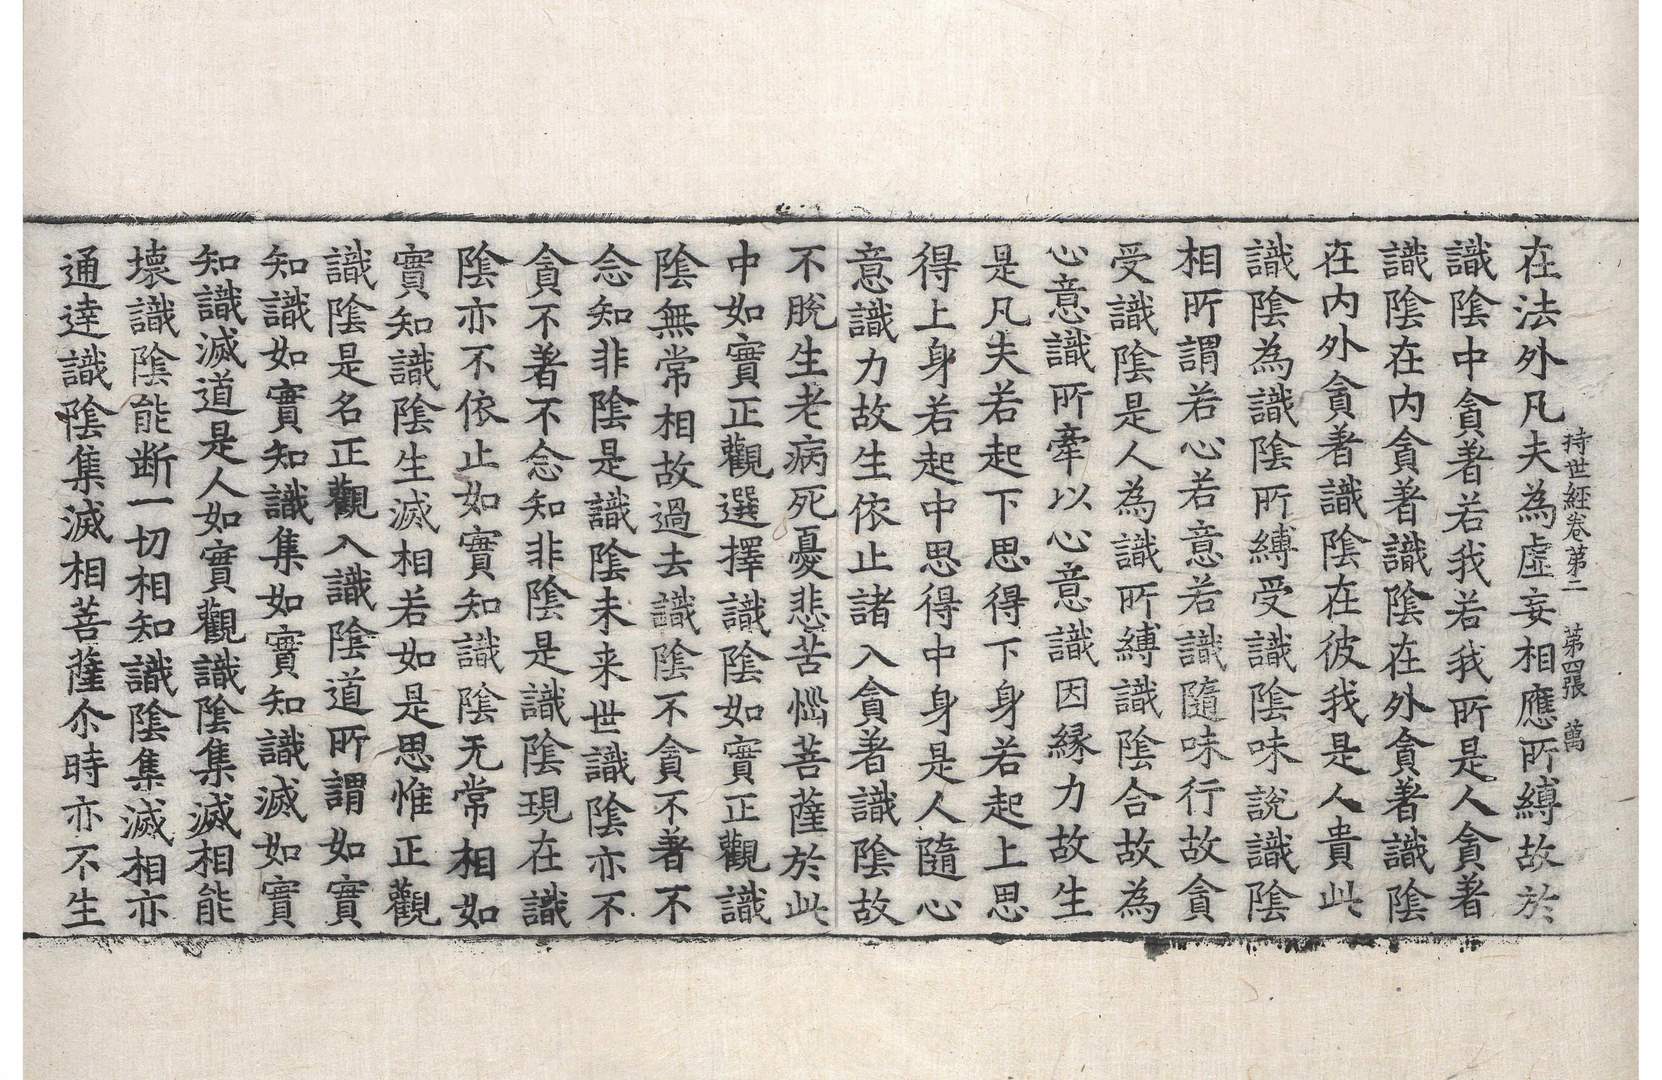 持世經卷第二　第四張　萬
在法外凡夫為虛妄相應所縛故於
識陰中貪著若我若我所是人貪著
識陰在內貪著識陰在外貪著識陰
在內外貪著識陰在彼我是人貴此
識陰為識陰所縛受識陰味說識陰
相所謂若心若意若識隨味行故貪
受識陰是人為識所縛識陰合故為
心意識所牽以心意識因緣力故生
是凡夫若起下思得下身若起上思
得上身若起中思得中身是人隨心
意識力故生依止諸入貪著識陰故
不脫生老病死憂悲苦惱菩薩於此
中如實正觀選擇識陰如實正觀識
陰無常相故過去識陰不貪不著不
念知非陰是識陰未来世識陰亦不
貪不著不念知非陰是識陰現在識
陰亦不依止如實知識陰无常相如
實知識陰生滅相若如是思惟正觀
識陰是名正觀入識陰道所謂如實
知識如實知識集如實知識滅如實
知識滅道是人如實觀識陰集滅相能
壞識陰能断一切相知識陰集滅相亦
通達識陰集滅相菩薩尒時亦不生